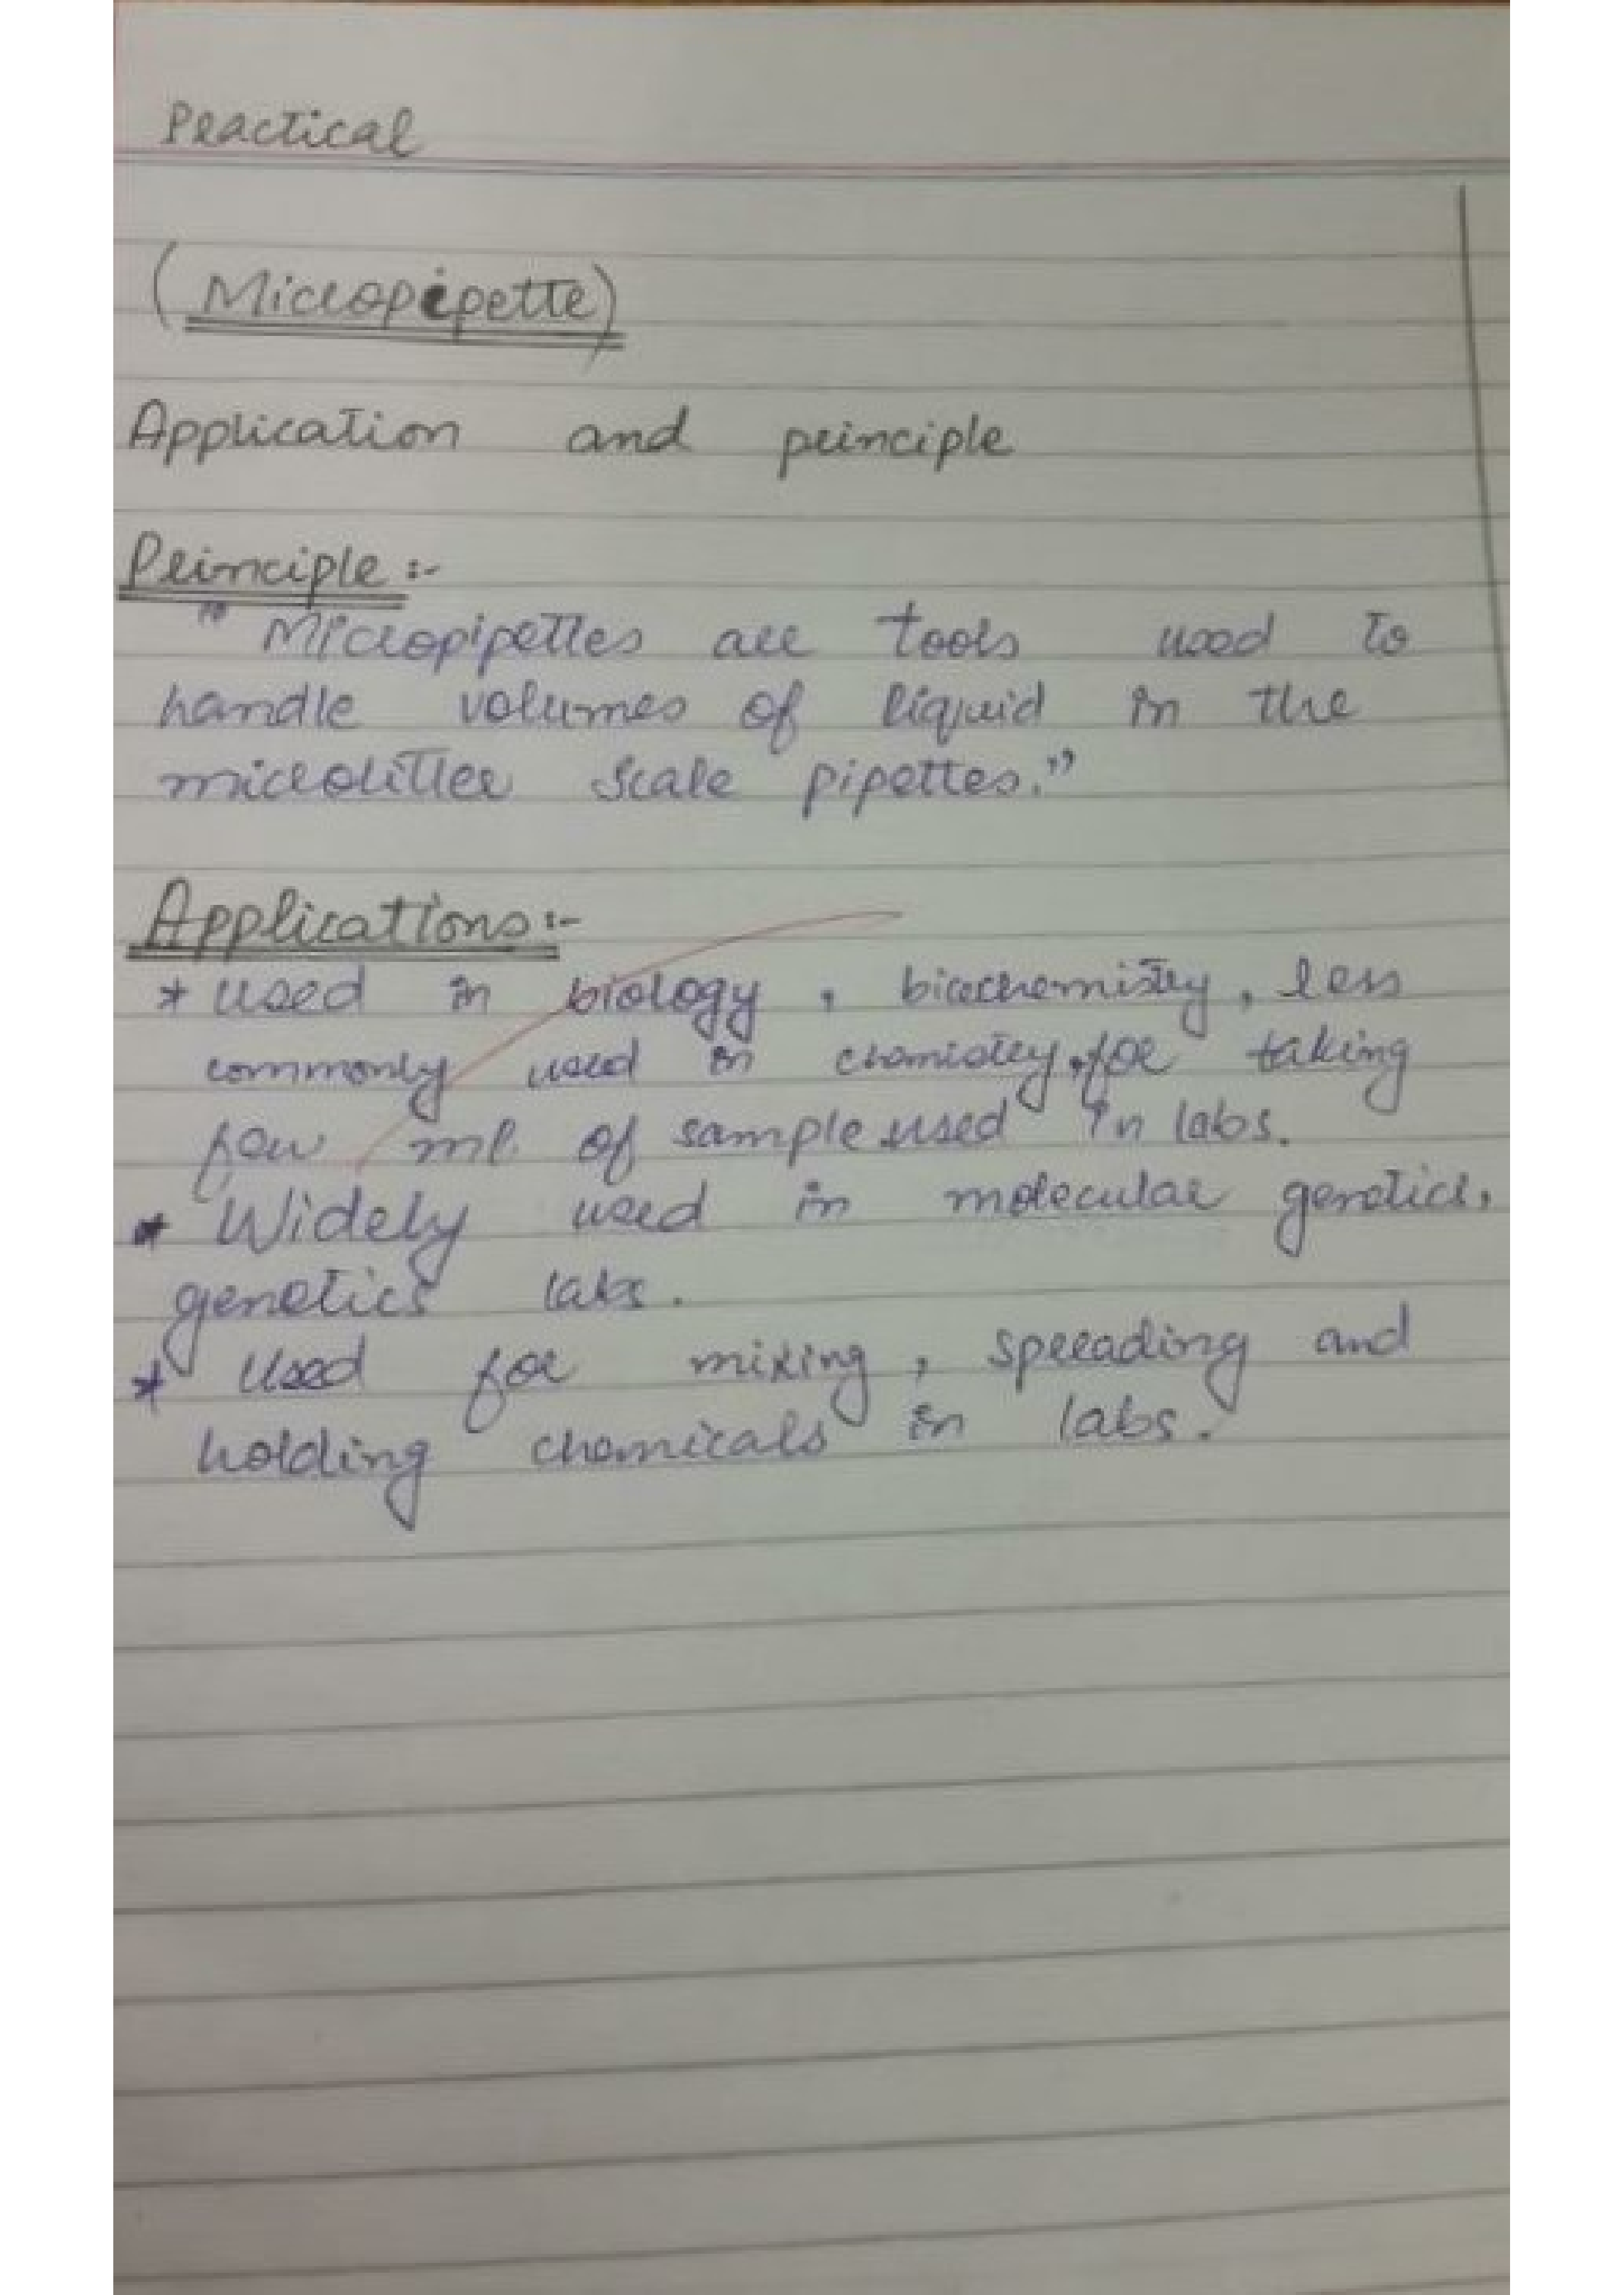 Practical
(Micropipette)
Application and principle
Principle :-
" Micropipettes are tools used to
handle volumes of liquid in the
microlitter scale pipettes."
Applications :-
* used in biology , biochemistry , less
commonly used in chemistry, for taking
few ml of sample used in labs.
* Widely used in molecular genetics,
genetics labs.
* used for mixing , spreading and
holding chemicals in labs.